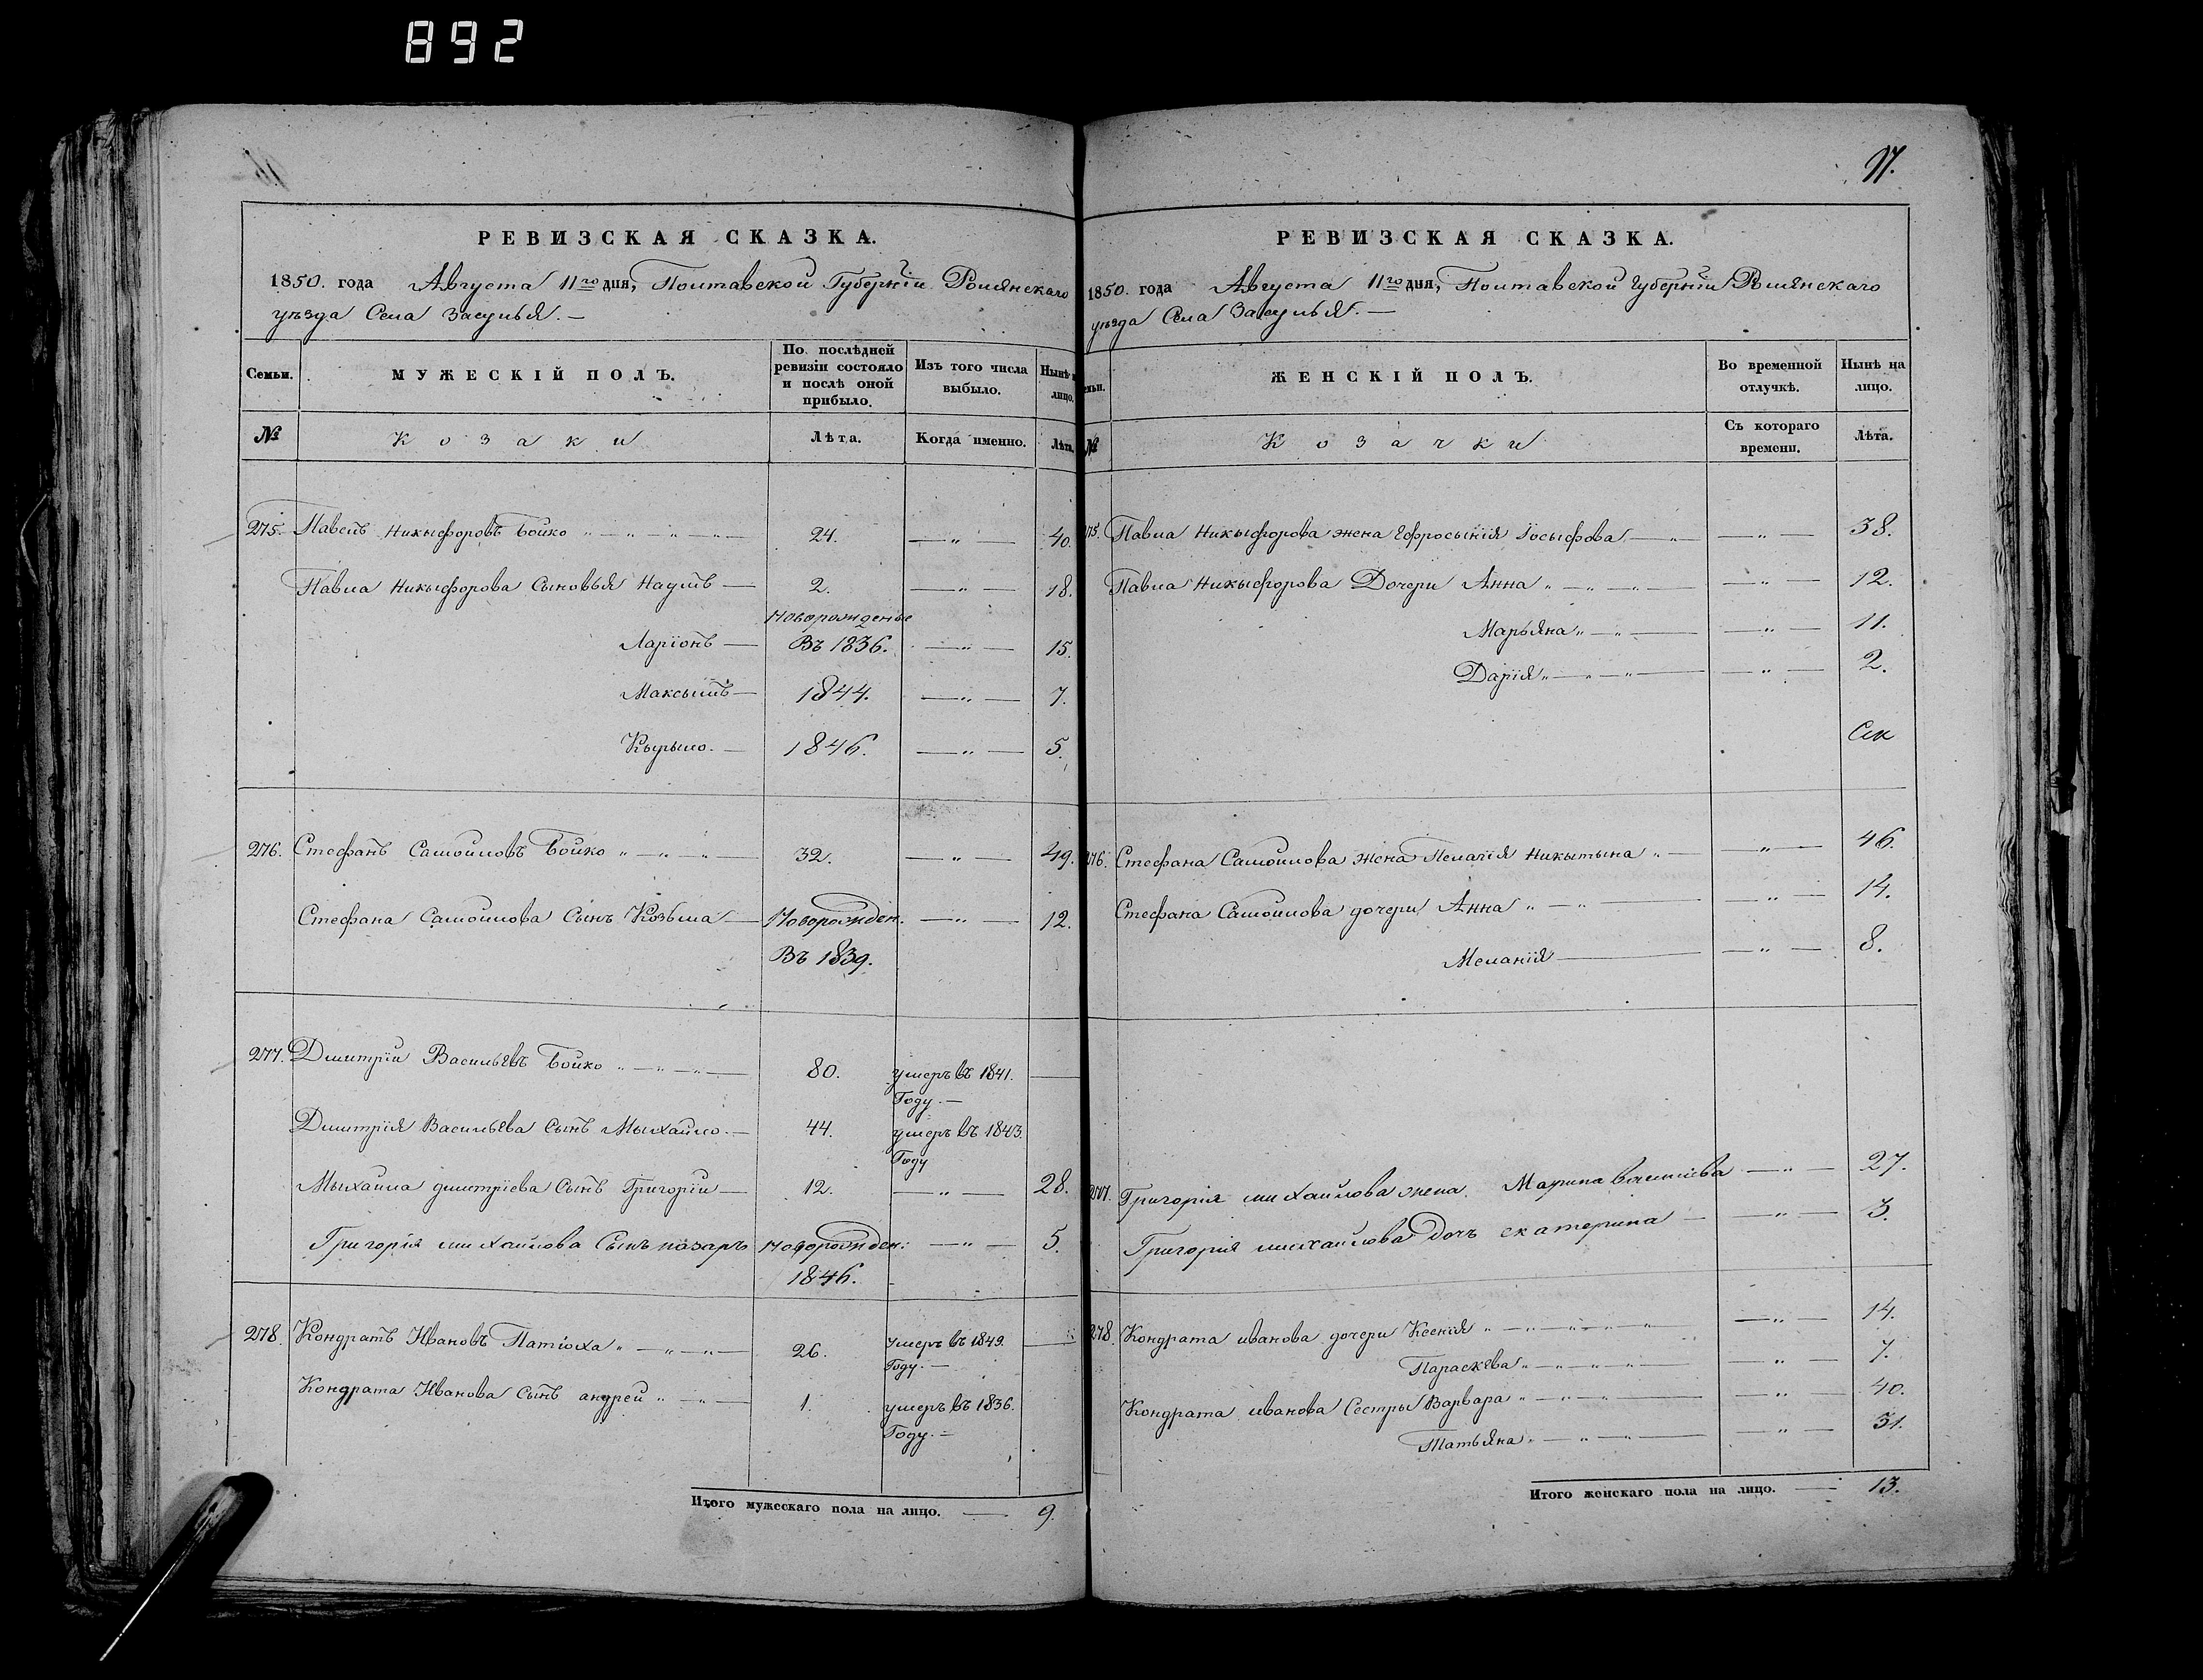 892
97.
РЕВИЗСКАЯ СКАЗКА.
1850. года Августа 11го дня, Полтавской Губернїи Роменскаго
уѣзда Села Засулья. —
Семьи. МУЖЕСКІЙ ПОЛЪ. По послѣдней ревизіи состояло и послѣ оной прибыло. Изъ того числа выбыло. Нынѣ на лицо.
№ Козаки Лѣта. Когда именно. Лѣта.
275. Павелъ Никыфоровъ Бойко 24. — „ — 40.
Павла Никыфорова Сыновья Наумъ — 2. — „ — 18.
Новорожденые
Ларїонъ — Въ 1836. — „ — 15.
Максымъ — 1844. — „ — 7.
Кырыло. — 1846. — „ — 5.
276. Стефанъ Самойловъ Бойко 32. — „ — 49.
Стефана Самойлова Сынъ Козьма — Новорожден. — „ — 12.
Въ 1839.
277. Дмитрїй Васильевъ Бойко 80. умеръ въ 1841. —
Году. —
Дмитрїя Васильева Сынъ Мыхайло. — 44. умеръ въ 1843.
Году
Мыхайла дмитрїева Сынъ Григорїй — 12. — „ — 28.
Григорїя михайлова Сынъ назаръ Новорожден: — „ — 5.
1846.
278. Кондратъ Ивановъ Патюха 26. умеръ въ 1849. —
Году. —
Кондрата Иванова Сынъ андрей 1. умеръ въ 1836.
Году. —
Итого мужескаго пола на лицо. — 9.
РЕВИЗСКАЯ СКАЗКА.
1850. года Августа 11го дня, Полтавской Губернїи Роменскаго
уѣзда Села Засулья. —
Семьи. ЖЕНСКІЙ ПОЛЪ. Во временной отлучкѣ. Нынѣ на лицо.
№ Козачки Съ котораго времени. Лѣта.
275. Павла Никыфорова жена Ефросынїя Іосыфова — „ — 38.
Павла Никыфорова Дочери Анна — „ — 12.
Марьяна — „ — 11.
Дарїя — „ — 2.
276. Стефана Самойлова жена Пелагїя Никытына — „ — 46.
Стефана Самойлова дочери Анна — „ — 14.
Меланїя — „ — 8.
277. Григорїя михайлова жена Марина васильева — „ — 27.
Григорїя михайлова Дочъ екатерина — „ — 3.
278. Кондрата иванова дочери Ксенїя — „ — 14.
Параскева — „ — 7.
Кондрата иванова Сестры Варвара — „ — 40.
Татьяна — „ — 31.
Итого женскаго пола на лицо. — 13.